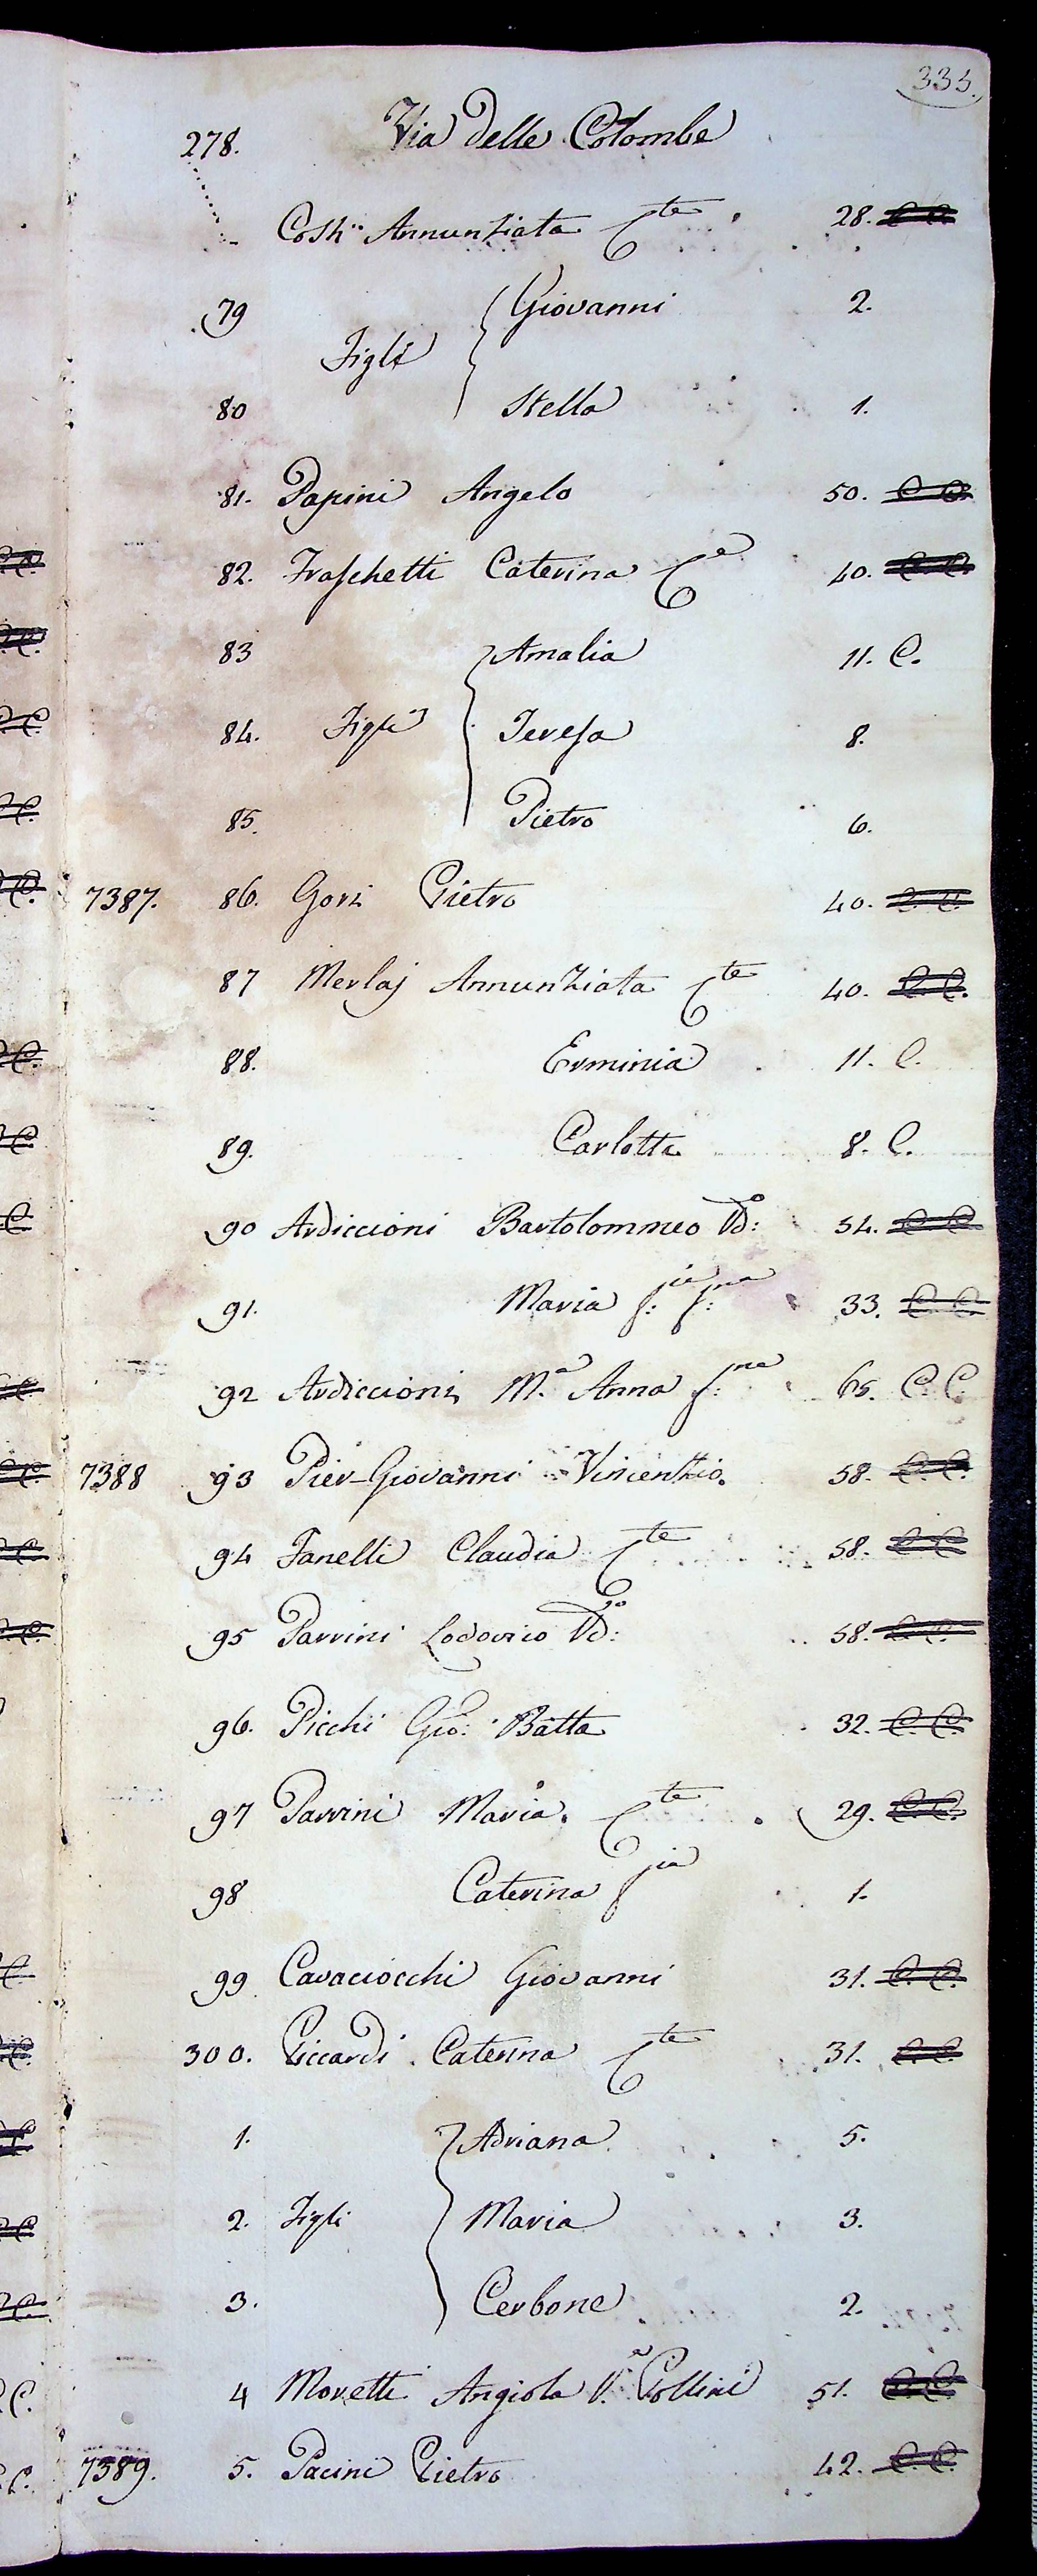 335.
278. Via delle Colombe
Costi Annunziata C.te 28. C.C.
79 Giovanni 2.
Figli
80 Stella 1.
81. Papini Angelo 50. C.C.
82. Fraschetti Caterina C.e 40. C.C.
83 Amalia 11. C.
84. Figli Teresa 8.
85. Pietro 6.
7387. 86. Gori Pietro 40. C.C.
87 Merlaj Annunziata C.te 40. C.C.
88. Erminia 11. C.
89. Carlotta 8. C.
90 Ardiccioni Bartolommeo Vd:o 54. C.C.
91. Maria f:ia f:na 33. C.C.
92 Ardiccioni M.a Anna f:na 65. C.C.
7388 93 Pier-Giovanni Vincenzio 58. C.C.
94 Fanelli Claudia C.te 58. C.C.
95 Parrini Lodovico Vd:o 58. C.C.
96. Picchi Gio: Batta 32. C.C.
97 Parrini Maria. C.te 29. C.C.
98 Caterina f.ia 1.
99 Cavaciocchi Giovanni 31. C.C.
300. Riccardi Caterina C.te 31. C.C.
1. Adriana 5.
2. Figli Maria 3.
3. Cerbone 2.
4 Moretti Angiola V.a Collini 51. C.C.
7389. 5. Pacini Pietro 42. C.C.